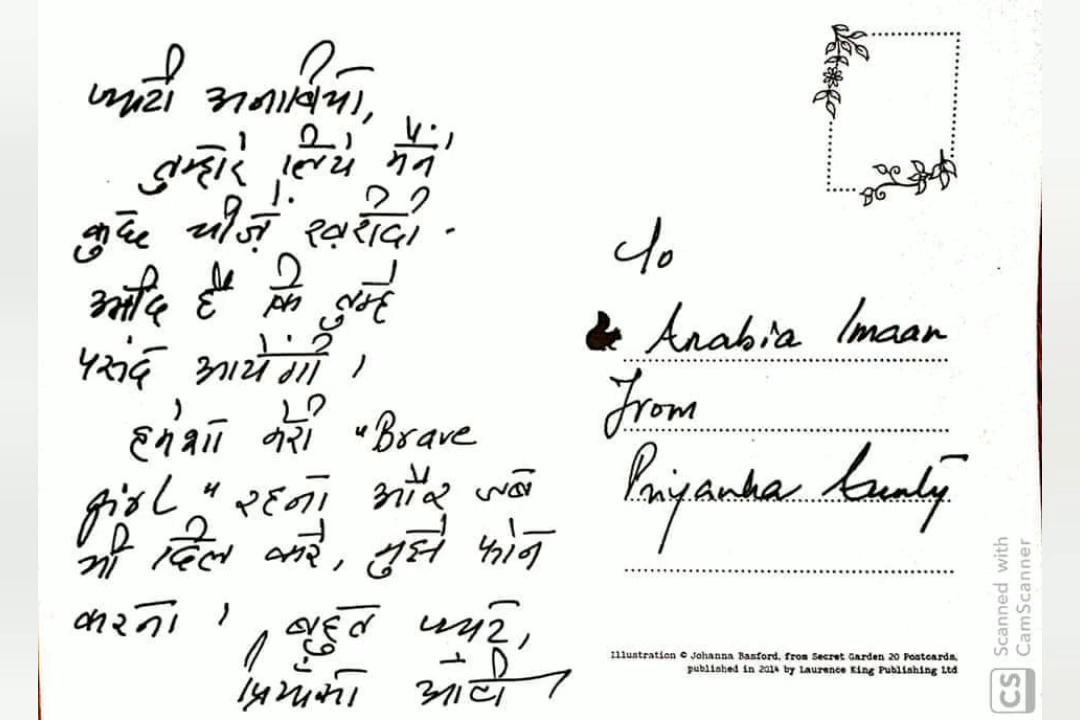 प्यारी अनाबिया,
तुम्हारे लिये मैंने
कुछ चीज़ें ख़रीदी.
उमीद है कि तुम्हें
पसंद आयेंगी।
हमेशा मेरी "Brave
girl" रहना और जब
भी दिल करे, मुझे फोन
करना। बहुत प्यार,
प्रियांका आंटी
To
Anabia Imaan
From
Priyanka Aunty
Illustration © Johanna Basford, from Secret Garden 20 Postcards,
published in 2014 by Laurence King Publishing Ltd
CS Scanned with
CamScanner